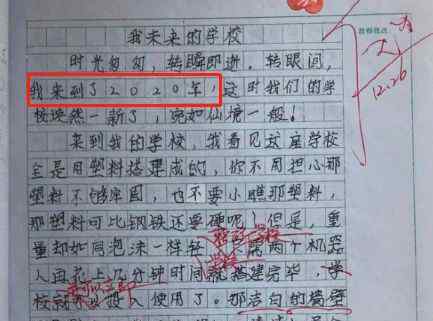 我未来的学校
时光匆匆，转瞬即逝，转眼间，
我来到了2020年，这时我们的学
校焕然一新了，宛如仙境一般！
来到我的学校，我看见这座学校
全是用塑料搭建成的，你不用担心那
塑料不够牢固，也不要小瞧那塑料，
那塑料可比钢铁还要硬呢！但是，重
量却如同泡沫一样轻，需两个机器
人再花上几分钟时间就搭建完毕，学
校就可以投入使用了。那洁白的墙壁
12.26